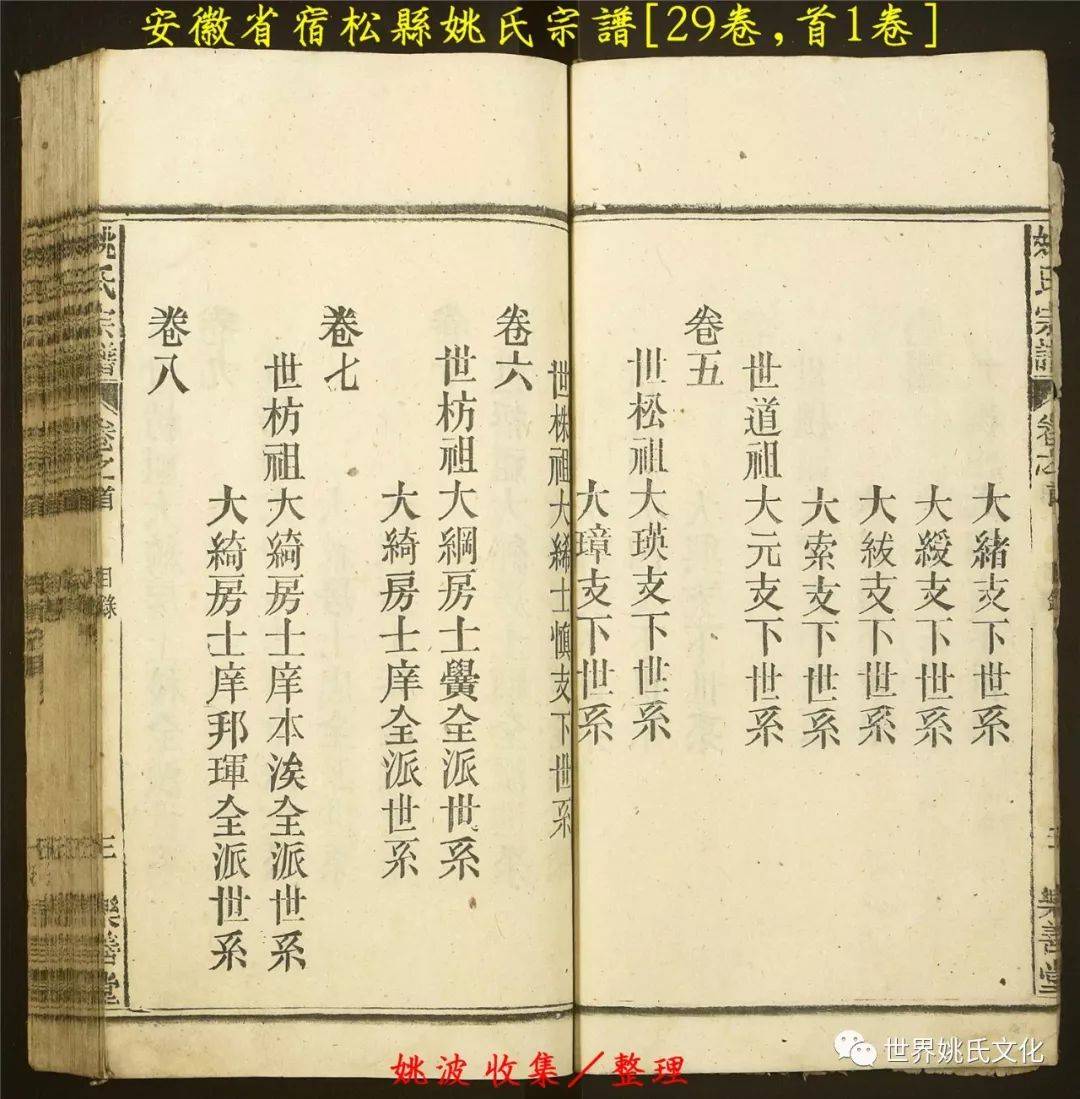 安徽省宿松縣姚氏宗譜[29卷,首1卷]
姚氏宗譜 卷之首
樂善堂
大緒支下世系
大綬支下世系
大紱支下世系
大索支下世系
世道祖大元支下世系
卷五
世松祖大瑛支下世系
大璋支下世系
世株祖大絺士慎支下世系
卷六
世枋祖大綱房士黌全派世系
大綺房士庠全派世系
卷七
世枋祖大綺房士庠本涘全派世系
大綺房士庠邦琿全派世系
卷八
姚氏宗譜 卷之首 目錄 三 樂善堂
姚波收集/整理
世界姚氏文化